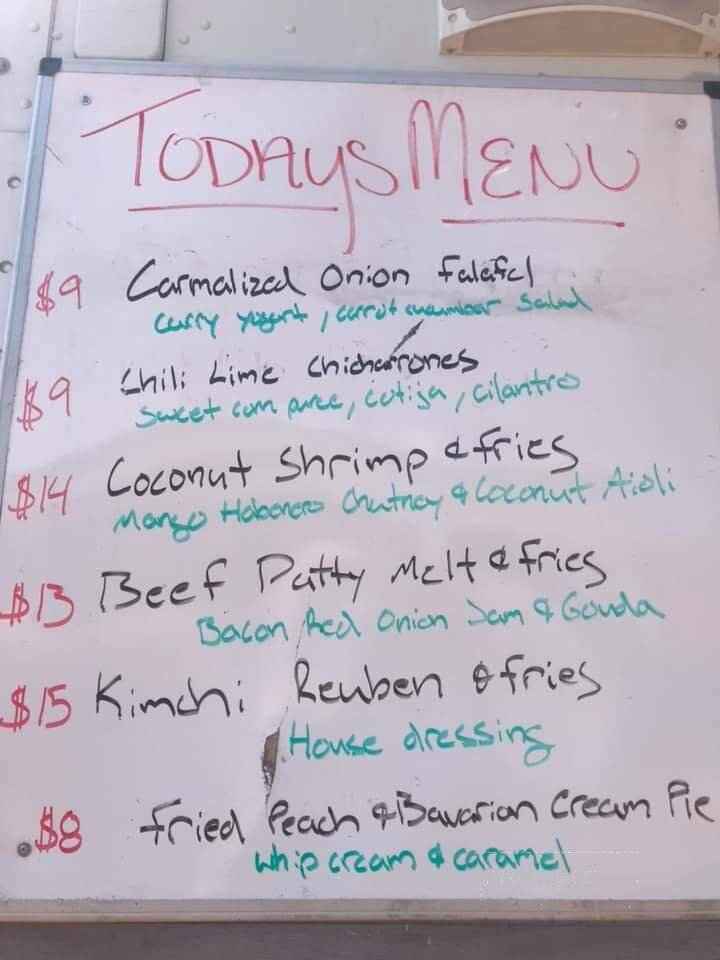 TODAYS MENU
$9 Carmalized Onion Falafel
curry yogurt, carrot cucumber salad
$9 Chili Lime Chicharrones
sweet corn puree, cotija, cilantro
$14 Coconut Shrimp & fries
Mango Habenero Chutney & Coconut Aioli
$13 Beef Patty Melt & fries
Bacon Red Onion Jam & Gouda
$15 Kimchi Reuben & fries
House dressing
$8 Fried Peach & Bavarian Cream Pie
whip cream & caramel